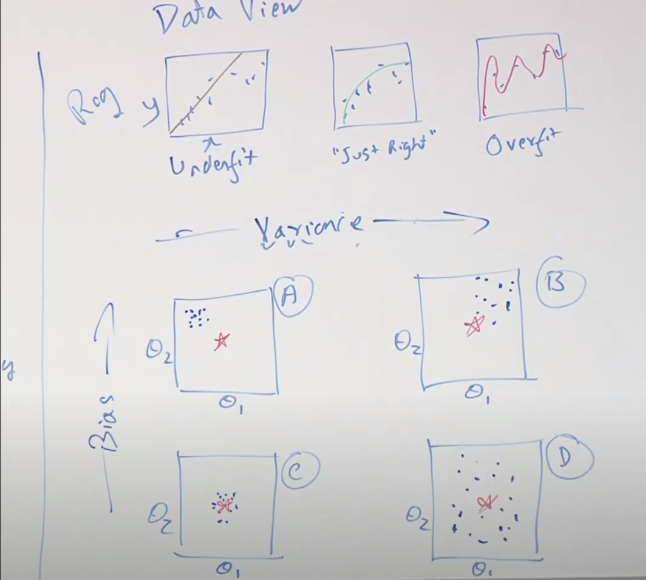 Data View
Reg y x
Underfit
"Just Right"
Overfit
Variance
Bias
A
θ2
θ1
B
θ2
θ1
C
θ2
θ1
D
θ2
θ1
y